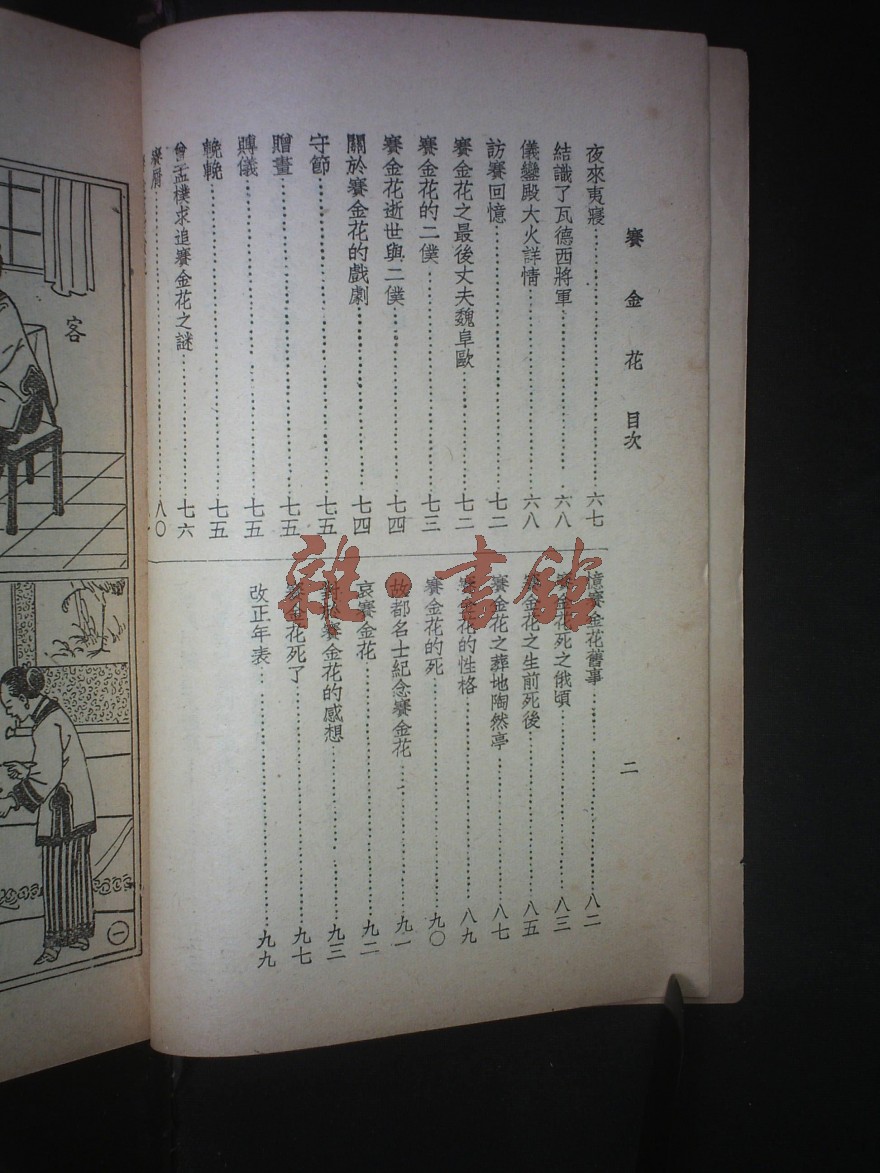 賽金花 目次
二
夜來夷寢 六七
結識了瓦德西將軍 六八
儀鑾殿大火詳情 六八
訪賽回憶 七二
賽金花之最後丈夫魏阜歐 七二
賽金花的二僕 七三
賽金花逝世與二僕 七四
關於賽金花的戲劇 七四
守節 七五
贈畫 七五
賻儀 七五
輓輓 七五
曾孟樸求追賽金花之謎 七六
八〇
憶賽金花舊事 八二
賽金花死之俄頃 八三
賽金花之生前死後 八五
賽金花之葬地陶然亭 八七
賽金花的性格 八九
賽金花的死 九〇
故都名士紀念賽金花 九一
哀賽金花 九二
對於賽金花的感想 九三
賽金花死了 九七
改正年表 九九
雜·書館
客
一